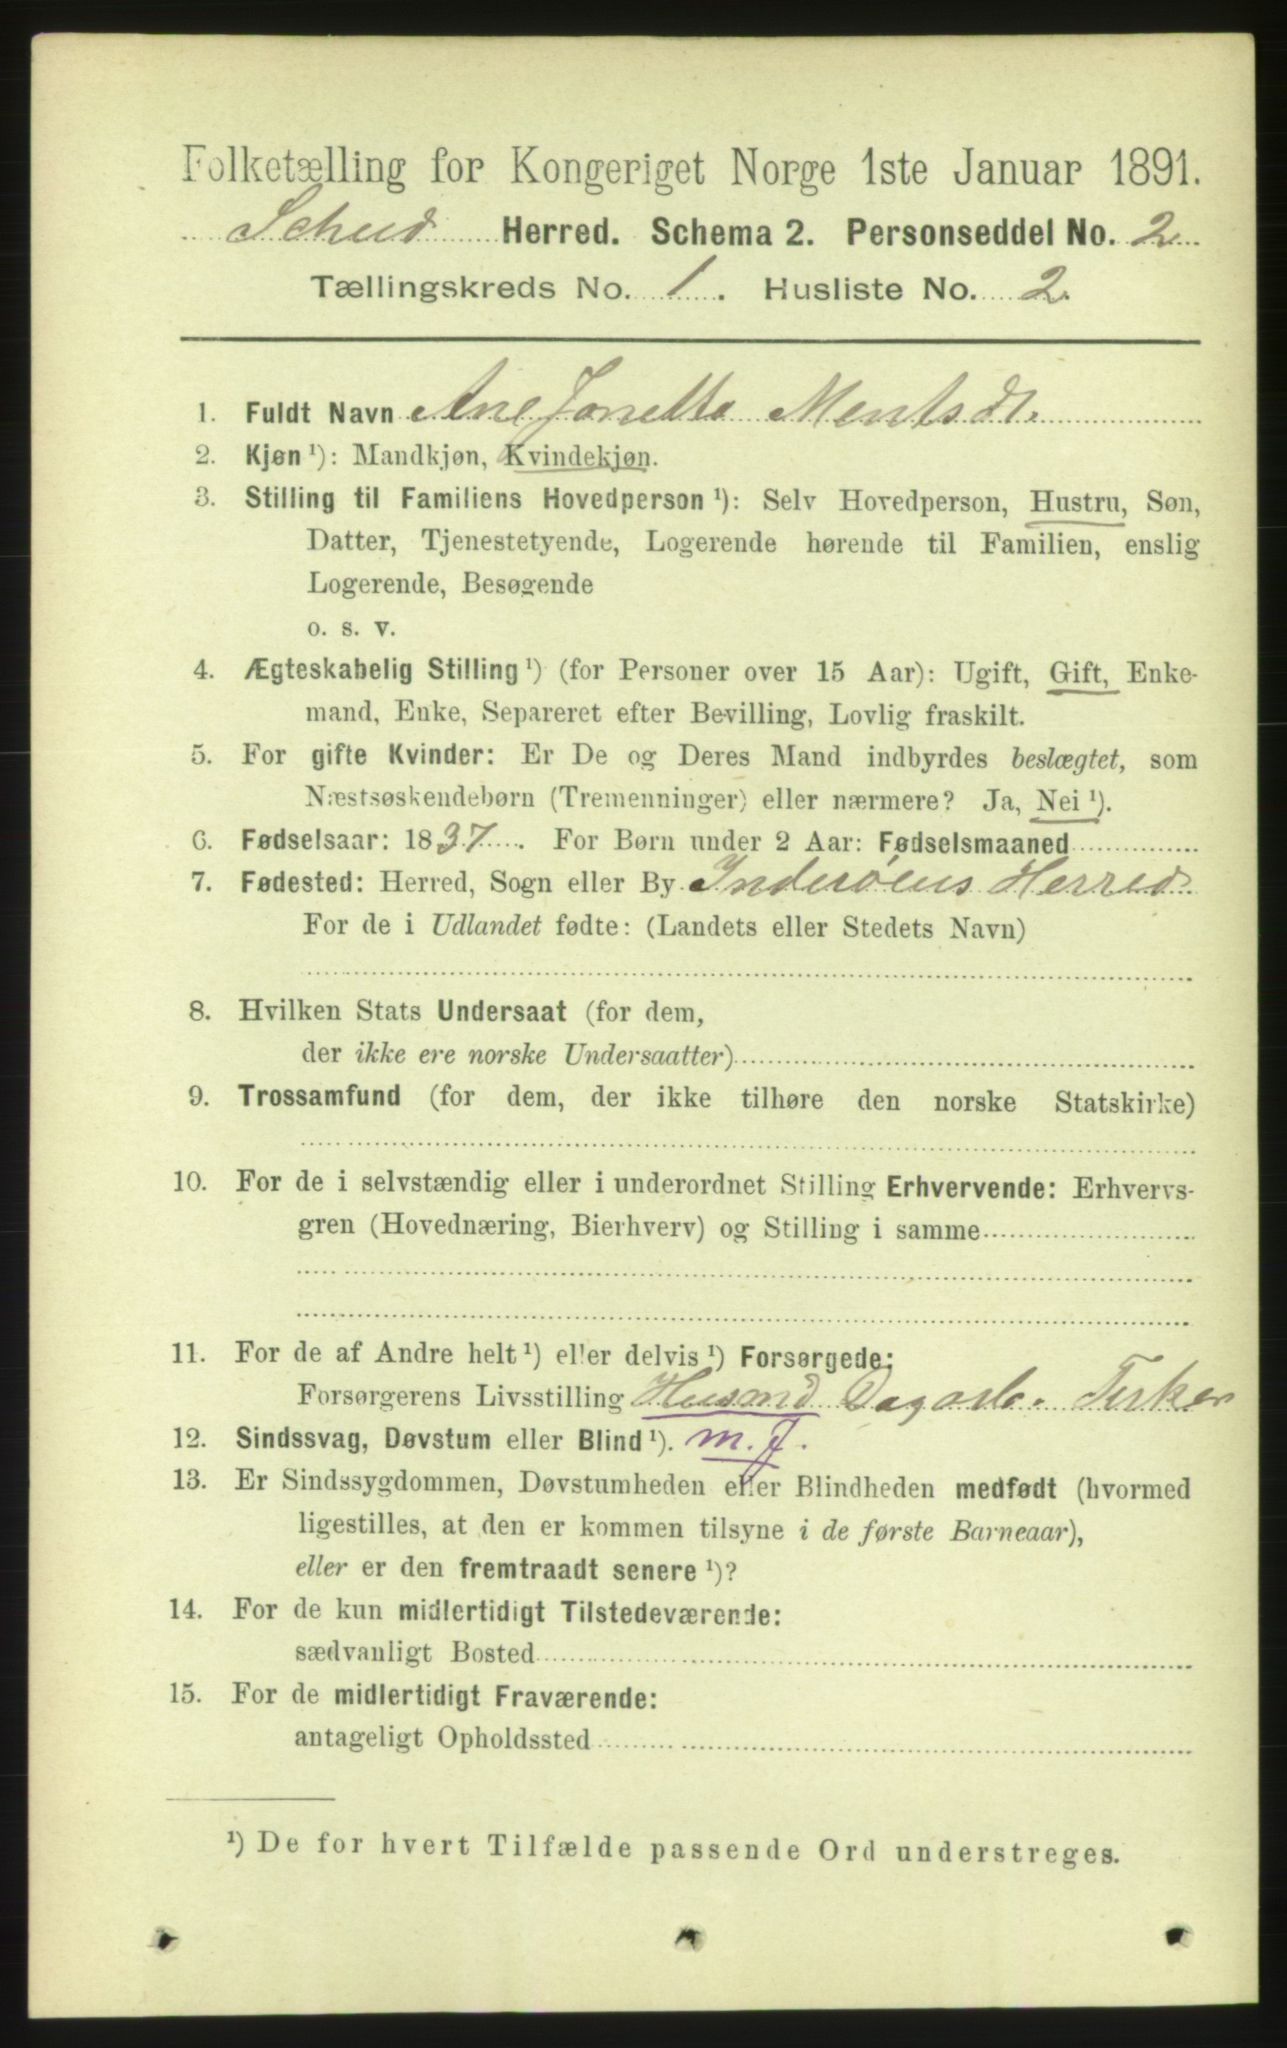 Folketælling for Kongeriget Norge 1ste Januar 1891.
Schud Herred. Schema 2. Personseddel No. 2
Tællingskreds No. 1. Husliste No. 2.
1. Fuldt Navn Ane Jonetta Mentsdt.
2. Kjøn ¹): Mandkjøn, Kvindekjøn.
3. Stilling til Familiens Hovedperson ¹): Selv Hovedperson, Hustru, Søn,
Datter, Tjenestetyende, Logerende hørende til Familien, enslig
Logerende, Besøgende
o. s. v.
4. Ægteskabelig Stilling ¹) (for Personer over 15 Aar): Ugift, Gift, Enke-
mand, Enke, Separeret efter Bevilling, Lovlig fraskilt.
5. For gifte Kvinder: Er De og Deres Mand indbyrdes beslægtet, som
Næstsøskendebørn (Tremenninger) eller nærmere? Ja, Nei ¹).
6. Fødselsaar: 1837. For Børn under 2 Aar: Fødselsmaaned
7. Fødested: Herred, Sogn eller By Inderöens Herred
For de i Udlandet fødte: (Landets eller Stedets Navn)
8. Hvilken Stats Undersaat (for dem,
der ikke ere norske Undersaatter)
9. Trossamfund (for dem, der ikke tilhøre den norske Statskirke)
10. For de i selvstændig eller i underordnet Stilling Erhvervende: Erhvervs-
gren (Hovednæring, Bierhverv) og Stilling i samme
11. For de af Andre helt ¹) eller delvis ¹) Forsørgede:
Forsørgerens Livsstilling Husmd Dagarb. Fisker
12. Sindssvag, Døvstum eller Blind ¹). m. J.
13. Er Sindssygdommen, Døvstumheden eller Blindheden medfødt (hvormed
ligestilles, at den er kommen tilsyne i de første Barneaar),
eller er den fremtraadt senere ¹)?
14. For de kun midlertidigt Tilstedeværende:
sædvanligt Bosted
15. For de midlertidigt Fraværende:
antageligt Opholdssted
¹) De for hvert Tilfælde passende Ord understreges.